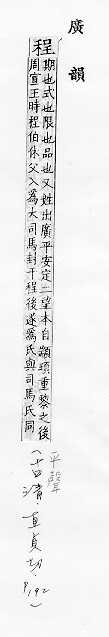 廣韻
程
期也式也限也品也又姓出廣平安定二望本自顓頊重黎之後
周宣王時程伯休父入爲大司馬封于程後遂爲氏與司馬氏同
平聲
(十四清 直貞切 P192)